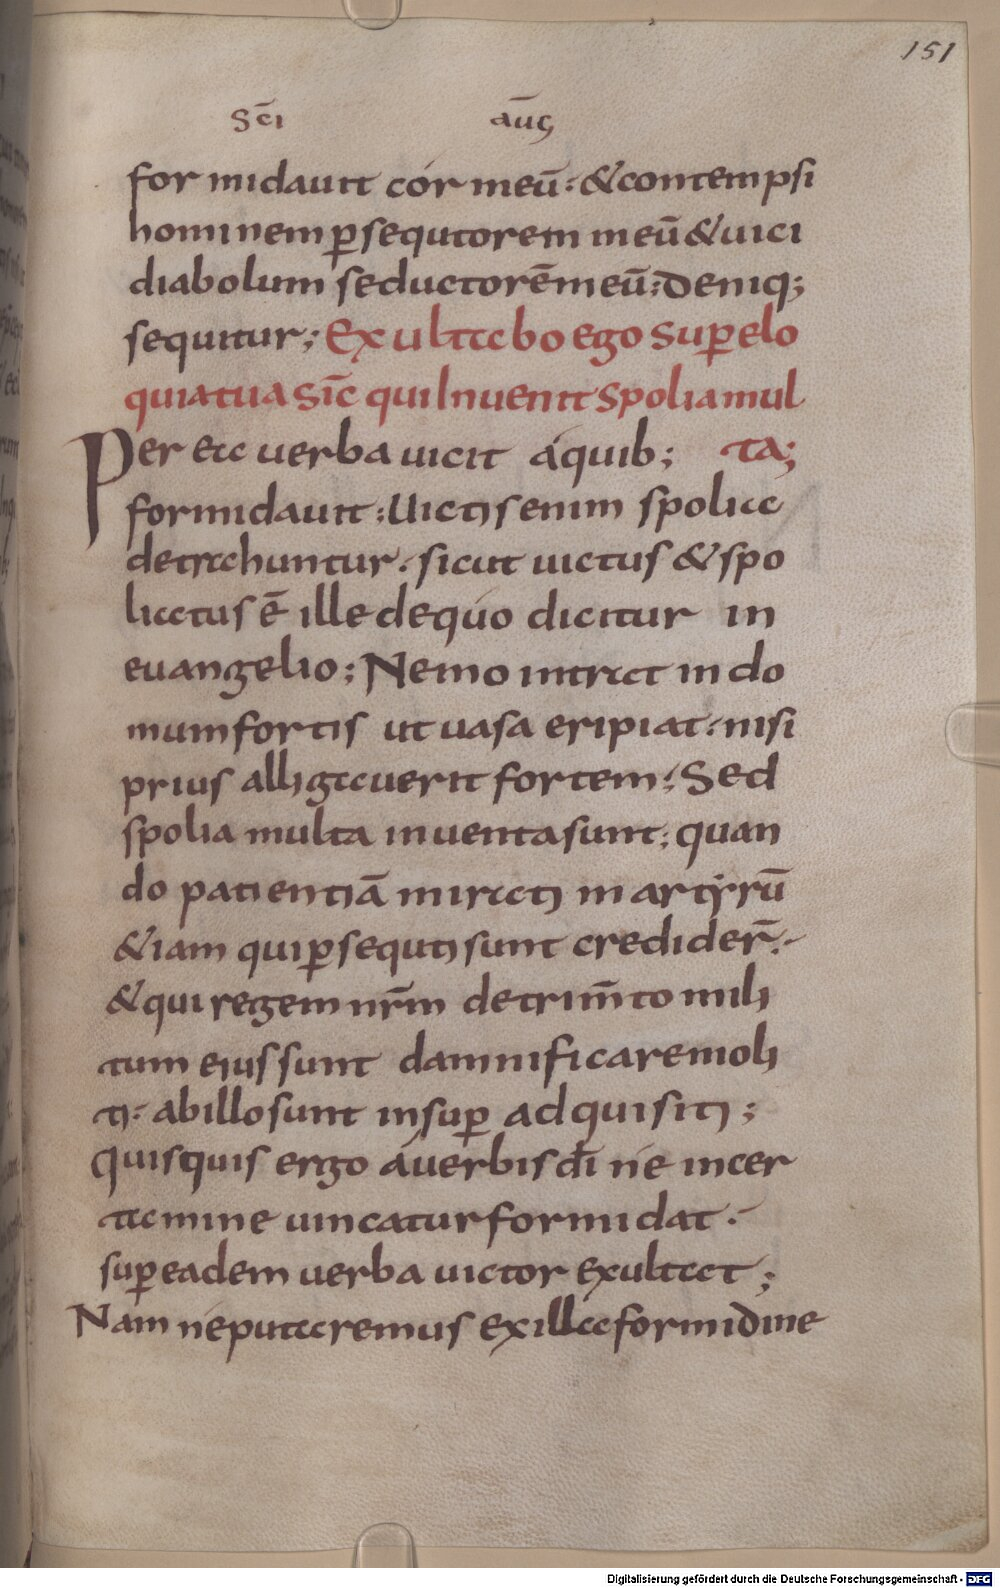 151
Sc̄i auḡ
formidauit cór meū: &contempsi
hominem p̲sequutorem meū & uici
diabolum seductorē meū: Deniq;
sequitur; Exultabo ego sup̲ elo
quia tua sīc qui Inuenit Spolia mul
Per ea uerba uicit áquib; ta;
formidauit: Uictis enim spolia
detrahuntur. sicut uictus & spo
liatus ē ille dequó dicitur in
euangelio; Nemo intrat in do
mum fortis ut uasa eripiat: nisi
prius alligauerit fortem: Sed
spolia multa inuenta sunt; quan
do patientiā mirati martyrū
&iam qui p̲sequti sunt credider̄.
& qui regem nr̄m detrim̄to mili
tum eius sunt damnificare moli
ti: ab illo sunt insup̲ adquisiti;
Quisquis ergo áuerbis dī né incer
tamine uincatur formidat.
sup̲ eadem uerba uictor exultat;
Nam né putaremus ex illa formidine
Digitalisierung gefördert durch die Deutsche Forschungsgemeinschaft - DFG